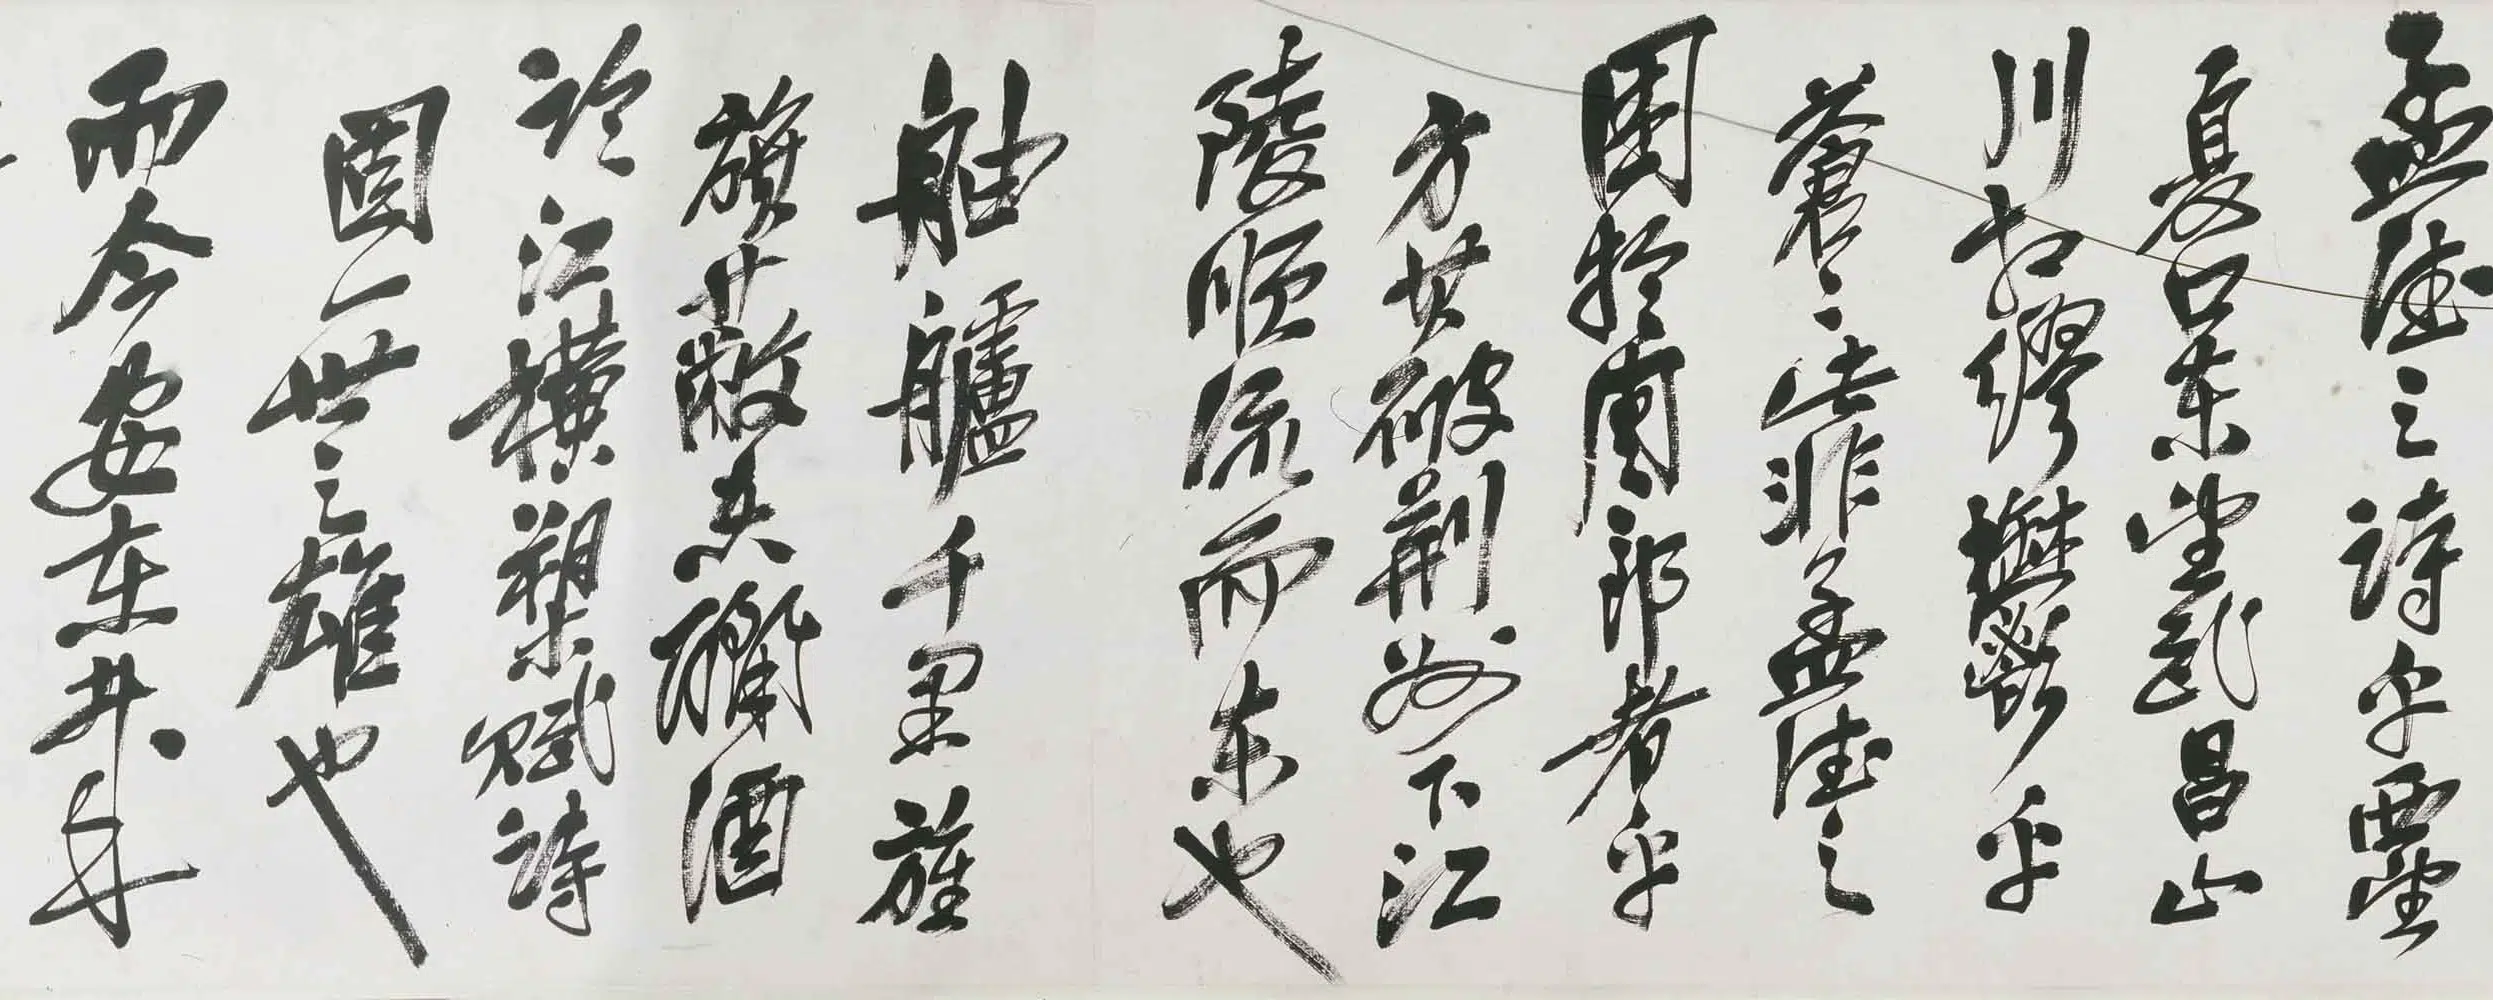 孟德之詩乎西望
夏口東望武昌山
川相繆鬱乎
蒼〻此非孟德之
困於周郎者乎
方其破荊州下江
陵順流而東也
舳艫千里旌
旗蔽空釃酒
臨江橫槊賦詩
固一世之雄也
而今安在哉